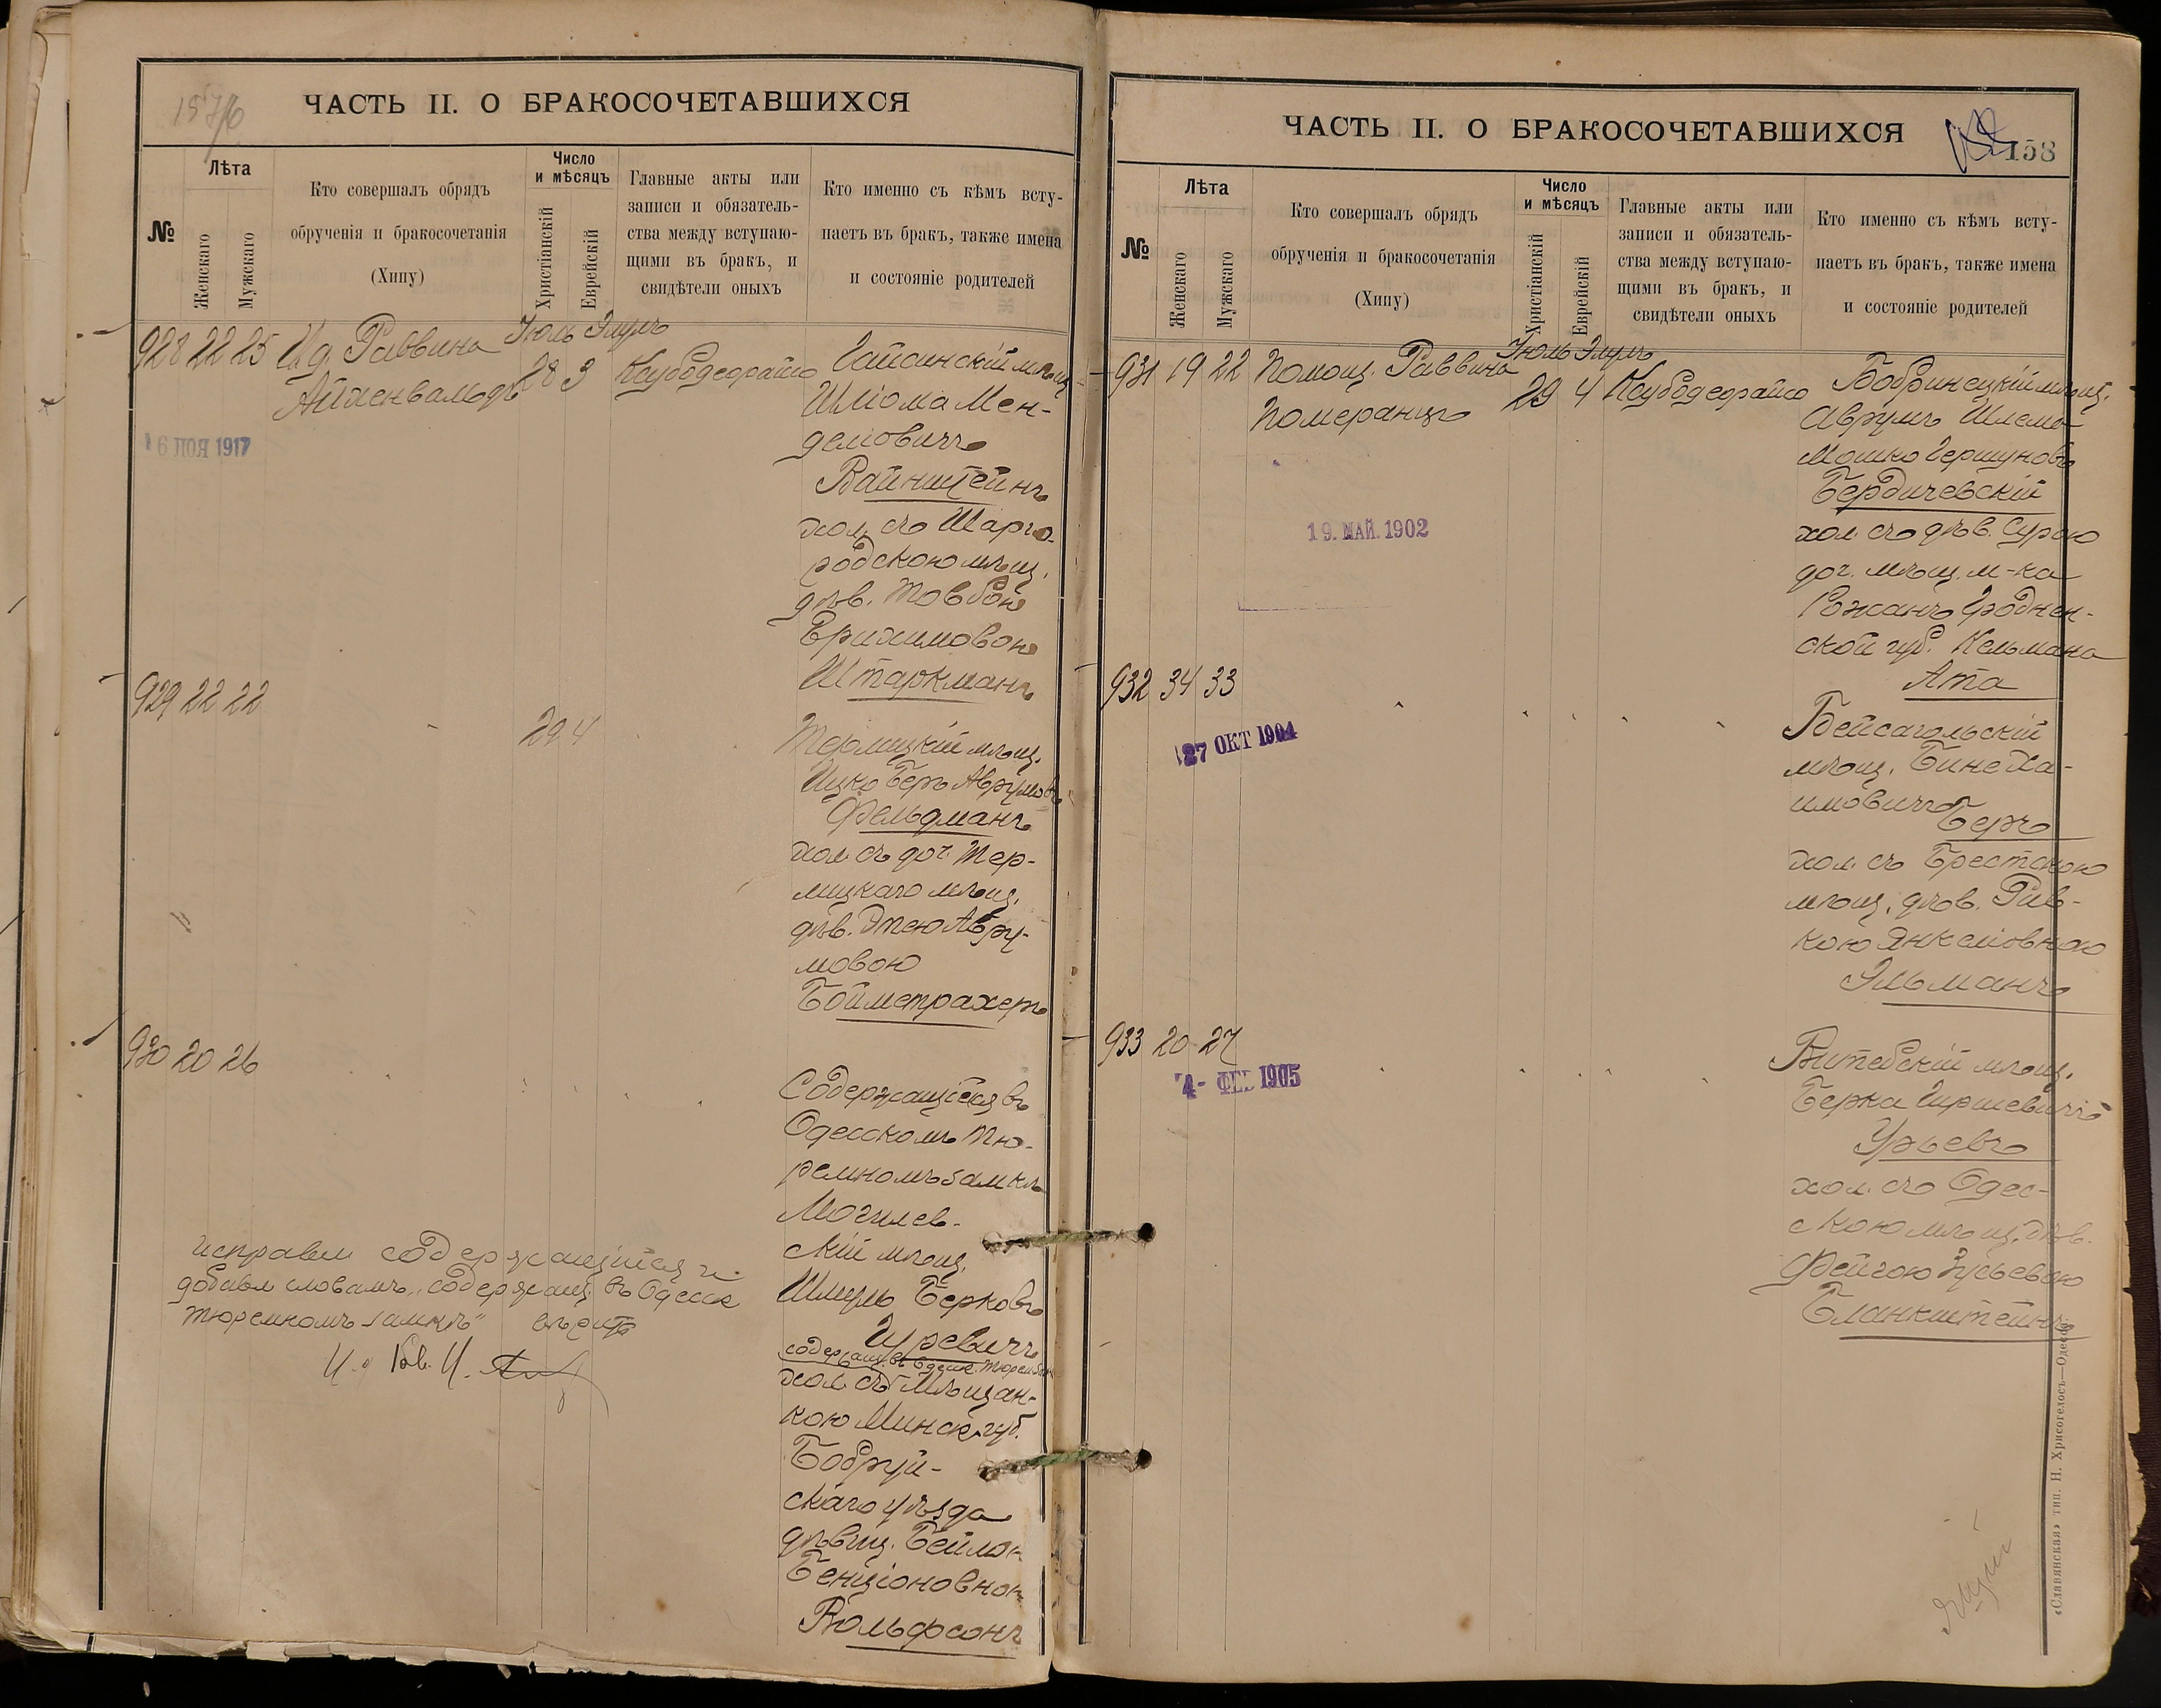 157/6
ЧАСТЬ II. О БРАКОСОЧЕТАВШИХСЯ
№
Лѣта
Женскаго
Мужскаго
Кто совершалъ обрядъ
обрученія и бракосочетанія
(Хипу)
Число
и мѣсяцъ
Христіанскій
Еврейскій
Главные акты или
записи и обязатель-
ства между вступаю-
щими въ бракъ, и
свидѣтели оныхъ
Кто именно съ кѣмъ всту-
паетъ въ бракъ, также имена
и состояніе родителей
928 22 25 И.д. Раввина Іюль Элулъ
Айхенвальдъ 28 3 Каубодеорайсо
Гайсинскій мѣщ.
Шліома Мен-
деліовичъ
Вайнштейнъ
хол. съ Шарго-
родскою мѣщ.
дѣв. Товбою
Ерихимовою
Штаркманъ
6 НОЯ 1917
929 22 22 29 4
Терлицкій мѣщ.
Ицко Беръ Аврумовъ
Фельдманъ
хол. съ доч. Тер-
лицкаго мѣщ.
дѣв. Этею Авру-
мовою
Бойметрахеръ
930 20 26
Содержащійся въ
Одесскомъ Тю-
ремномъ замкѣ
Могилев-
скій мѣщ.
Шмуль Берковъ
Гуревичъ
содержащ. въ Одесск. Тюрем. зам.
хол. съ Мѣщан-
кою Минск. губ.
Бобруй-
скаго уѣзда
дѣвиц. Бейлою
Бенціоновною
Вольфсонъ
исправл. содержащійся и
добавл. словамъ "содержащ. въ Одесск.
тюремномъ замкѣ" вѣрить
И. д. Рав.
ЧАСТЬ II. О БРАКОСОЧЕТАВШИХСЯ
158
№
Лѣта
Женскаго
Мужскаго
Кто совершалъ обрядъ
обрученія и бракосочетанія
(Хипу)
Число
и мѣсяцъ
Христіанскій
Еврейскій
Главные акты или
записи и обязатель-
ства между вступаю-
щими въ бракъ, и
свидѣтели оныхъ
Кто именно съ кѣмъ всту-
паетъ въ бракъ, также имена
и состояніе родителей
931 19 22 Помощ. Раввина Іюль Элулъ
Померанцъ 29 4 Каубодеорайсо
Бобринецкій мѣщ.
Аврумъ Шлема
Мошко Гершуновъ
Бердичевскій
хол. съ дѣв. Сурою
доч. мѣщ. м-ка
Рожанъ Гроднен-
ской губ. Кельмана
Ата
19. МАЙ. 1902
932 34 33
27 ОКТ 1904
Бейсагольскій
мѣщ. Бине Ха-
имовичъ
Беръ
хол. съ Брестскою
мѣщ. дѣв. Рив-
кою Янкеліовною
Эльманъ
933 20 27
4- ФЕВ 1905
Витебскій мѣщ.
Берка Гиршевичъ
Урьевъ
хол. съ Одес-
скою мѣщ. дѣв.
Фейгою Зусьевою
Бланкштейнъ
«Славянская» тип. Н. Хрисогелосъ—Одесса.